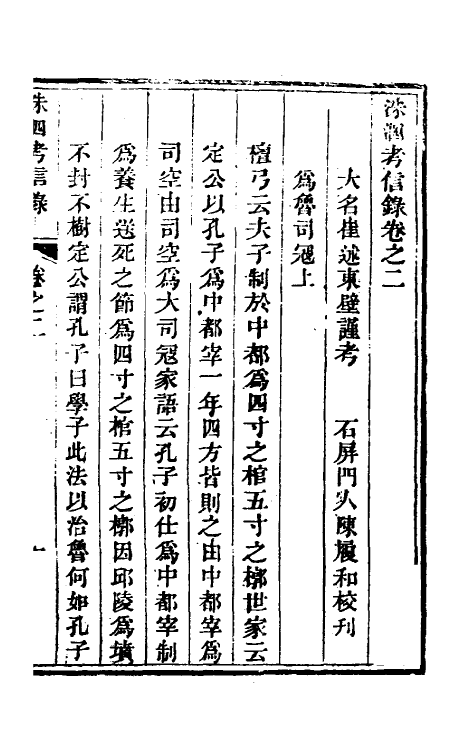 洙泗考信錄卷之二
大名崔述東壁謹考　石屏門人陳履和校刊
爲魯司寇上
檀弓云夫子制於中都爲四寸之棺五寸之槨世家云
定公以孔子爲中都宰一年四方皆則之由中都宰爲
司空由司空爲大司寇家語云孔子初仕爲中都宰制
爲養生送死之節爲四寸之棺五寸之槨因邱陵爲墳
不封不樹定公謂孔子曰學子此法以治魯何如孔子
洙泗考信錄　卷之二　一